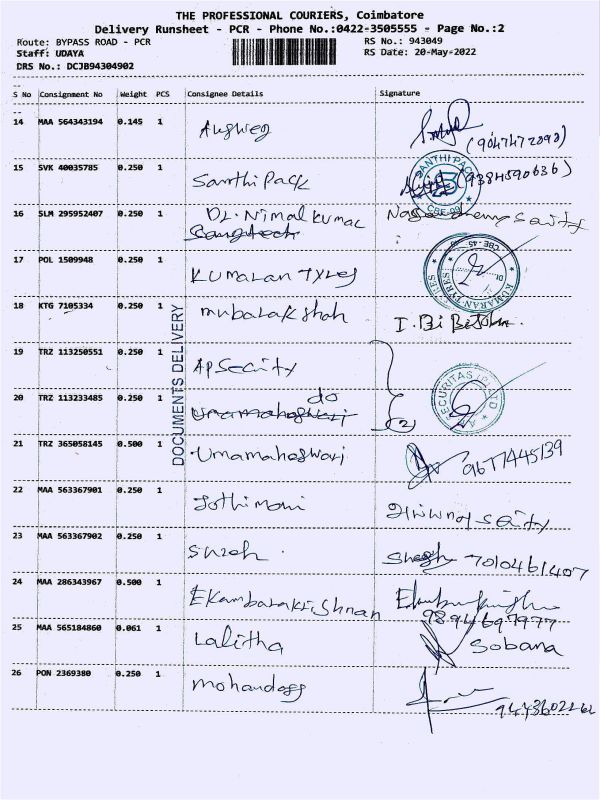 THE PROFESSIONAL COURIERS, Coimbatore
Delivery Runsheet - PCR - Phone No.:0422-3505555 - Page No.:2
Route: BYPASS ROAD - PCR RS No.: 943049
Staff: UDAYA RS Date: 20-May-2022
DRS No.: DCJB94304902
S No Consignment No Weight PCS Consignee Details Signature
14 MAA 564343194 0.145 1
15 SVK 40035785 0.250 1 Santhi Pack
SANTHI PACK
CBE-09
(9384590636)
16 SLM 295952407 0.250 1 DR. Nimal Kumar
17 POL 1509948 0.250 1 Kumaran Tyres
CBE-45
KUMARAN TYRES
18 KTG 7105334 0.250 1 mubarakshah
DOCUMENTS DELIVERY
19 TRZ 113250551 0.250 1 AP Secrity
20 TRZ 113233485 0.250 1 do
Umamaheswari (2)
SECURITAS (P) LTD
21 TRZ 365058145 0.500 1 Umamaheswari
22 MAA 563367901 0.250 1 Jothimani
23 MAA 563367902 0.250 1 Suresh 7010461407
24 MAA 286343967 0.500 1 Ekambarakrishnan
9894697977
25 MAA 565184860 0.061 1 Lalitha Sobana
26 PON 2369380 0.250 1 mohandoss